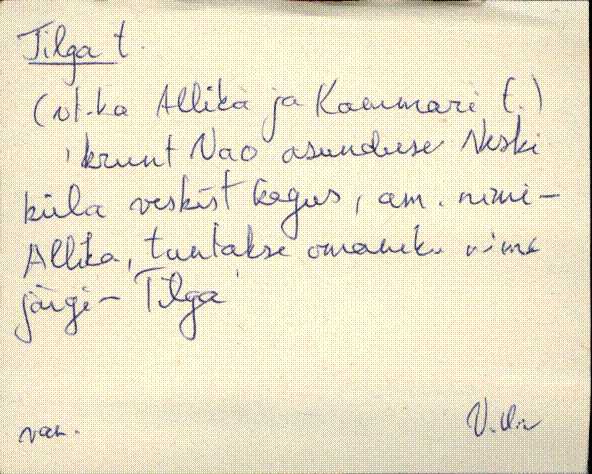 Tilga t.
(vt. ka Allika ja Kaenmari t.)
'krunt Nao asunduse Neski
küla veskist kagus, am. nimi-
Allika, tuntakse omaniku nime
järgi - Tilga'
van.